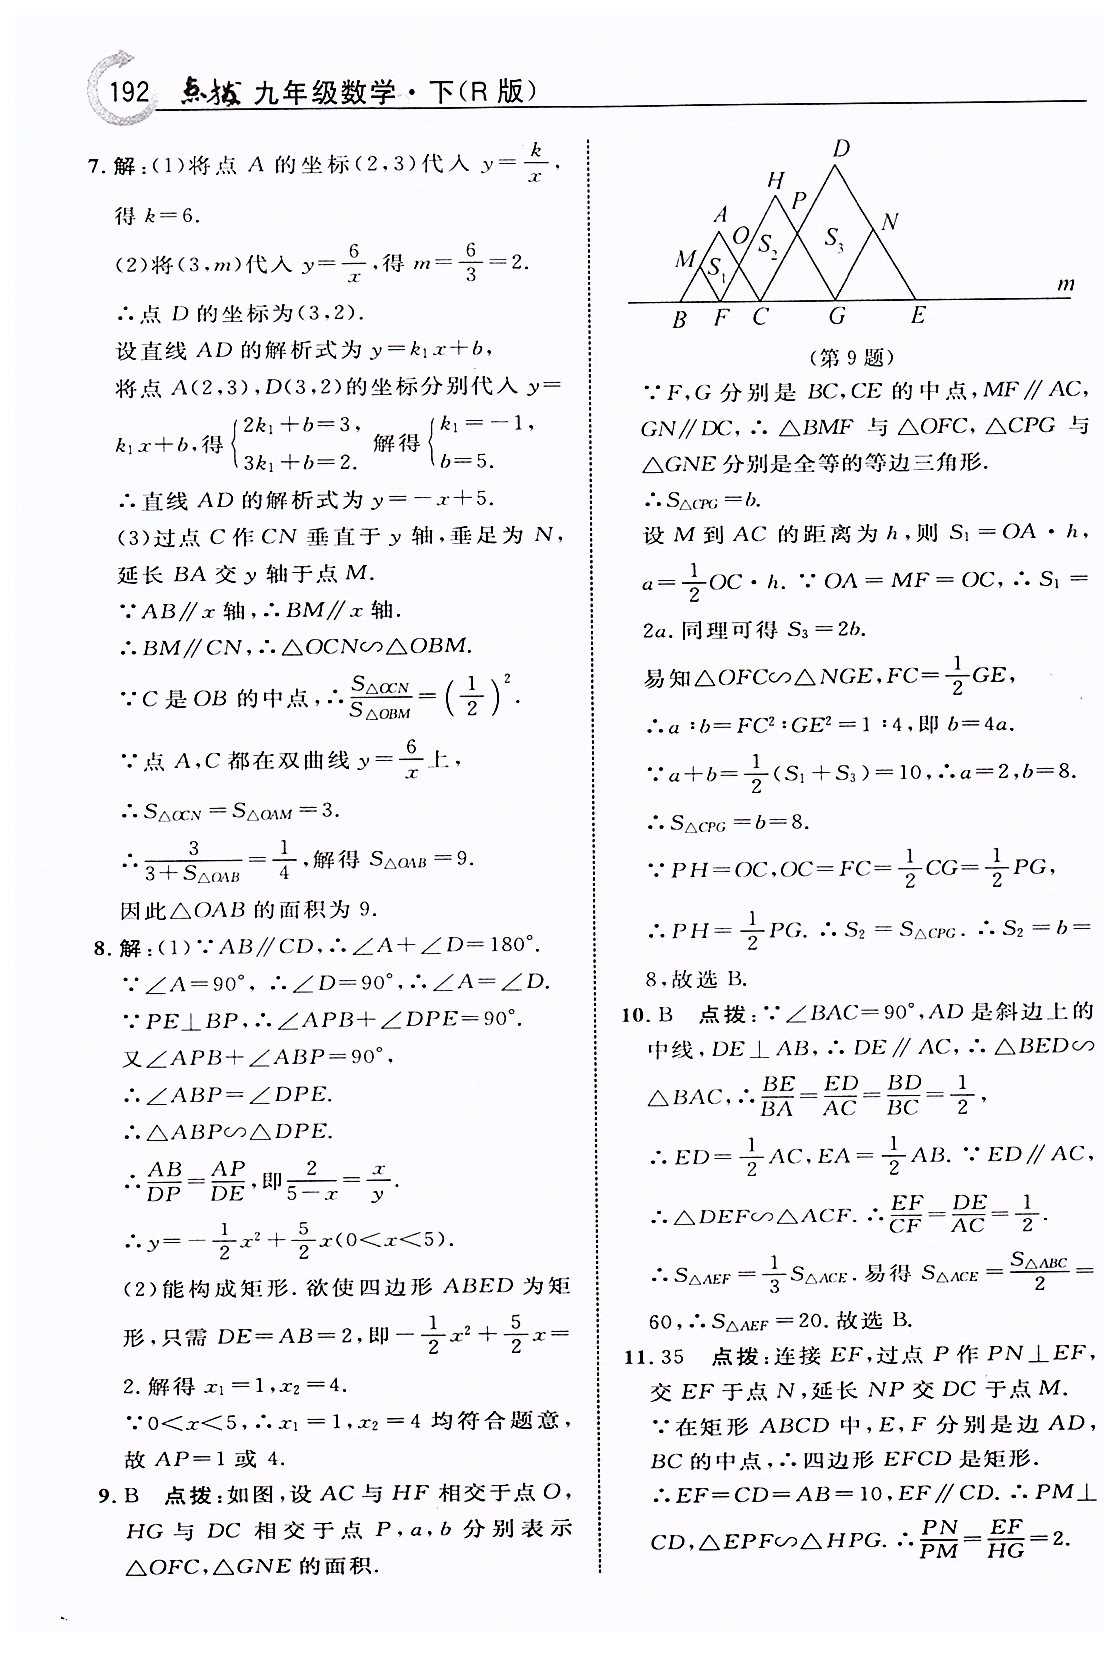 192 点拨 九年级数学·下(R版)
7. 解:(1)将点 A 的坐标(2,3)代入 y=k/x,
得 k=6.
(2)将(3,m)代入 y=6/x,得 m=6/3=2.
∴点 D 的坐标为(3,2).
设直线 AD 的解析式为 y=k₁x+b,
将点 A(2,3),D(3,2)的坐标分别代入 y=
k₁x+b,得{2k₁+b=3, 3k₁+b=2. 解得{k₁=-1, b=5.
∴直线 AD 的解析式为 y=-x+5.
(3)过点 C 作 CN 垂直于 y 轴,垂足为 N,
延长 BA 交 y 轴于点 M.
∵AB∥x 轴,∴BM∥x 轴.
∴BM∥CN,∴△OCN∽△OBM.
∵C 是 OB 的中点,∴S△OCN/S△OBM=(1/2)².
∵点 A,C 都在双曲线 y=6/x 上,
∴S△OCN=S△OAM=3.
∴3/(3+S△OAB)=1/4,解得 S△OAB=9.
因此△OAB 的面积为 9.
8. 解:(1)∵AB∥CD,∴∠A+∠D=180°.
∵∠A=90°, ∴∠D=90°,∴∠A=∠D.
∵PE⊥BP,∴∠APB+∠DPE=90°.
又∠APB+∠ABP=90°,
∴∠ABP=∠DPE.
∴△ABP∽△DPE.
∴AB/DP=AP/DE,即2/(5-x)=x/y.
∴y=-1/2x²+5/2x(0<x<5).
(2)能构成矩形.欲使四边形 ABED 为矩
形,只需 DE=AB=2,即-1/2x²+5/2x=
2.解得 x₁=1,x₂=4.
∵0<x<5,∴x₁=1,x₂=4 均符合题意,
故 AP=1 或 4.
9. B 点拨:如图,设 AC 与 HF 相交于点 O,
HG 与 DC 相交于点 P,a,b 分别表示
△OFC,△GNE 的面积.
D
H
P
A
O
N
M
S₁
S₂
S₃
m
B F C G E
(第 9 题)
∵F,G 分别是 BC,CE 的中点,MF∥AC,
GN∥DC,∴△BMF 与△OFC,△CPG 与
△GNE 分别是全等的等边三角形.
∴S△CPG=b.
设 M 到 AC 的距离为 h,则 S₁=OA·h,
a=1/2OC·h.∵OA=MF=OC,∴S₁=
2a.同理可得 S₃=2b.
易知△OFC∽△NGE,FC=1/2GE,
∴a∶b=FC²∶GE²=1∶4,即 b=4a.
∵a+b=1/2(S₁+S₃)=10,∴a=2,b=8.
∴S△CPG=b=8.
∵PH=OC,OC=FC=1/2CG=1/2PG,
∴PH=1/2PG.∴S₂=S△CPG.∴S₂=b=
8,故选 B.
10. B 点拨:∵∠BAC=90°,AD 是斜边上的
中线,DE⊥AB,∴DE∥AC,∴△BED∽
△BAC,∴BE/BA=ED/AC=BD/BC=1/2,
∴ED=1/2AC,EA=1/2AB.∵ED∥AC,
∴△DEF∽△ACF.∴EF/CF=DE/AC=1/2.
∴S△AEF=1/3S△ACE.易得 S△ACE=S△ABC/2=
60,∴S△AEF=20.故选 B.
11. 35 点拨:连接 EF,过点 P 作 PN⊥EF,
交 EF 于点 N,延长 NP 交 DC 于点 M.
∵在矩形 ABCD 中,E,F 分别是边 AD,
BC 的中点,∴四边形 EFCD 是矩形.
∴EF=CD=AB=10,EF∥CD.∴PM⊥
CD,△EPF∽△HPG.∴PN/PM=EF/HG=2.